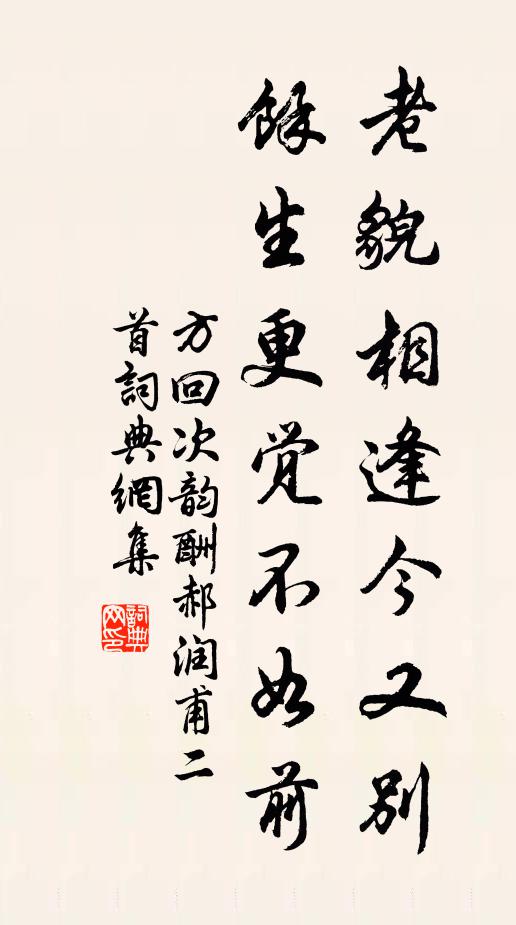 老貌相逢今又别
餘生更觉不如前
方回次韵酬郝润甫二
首詞典網集
詞典
网印